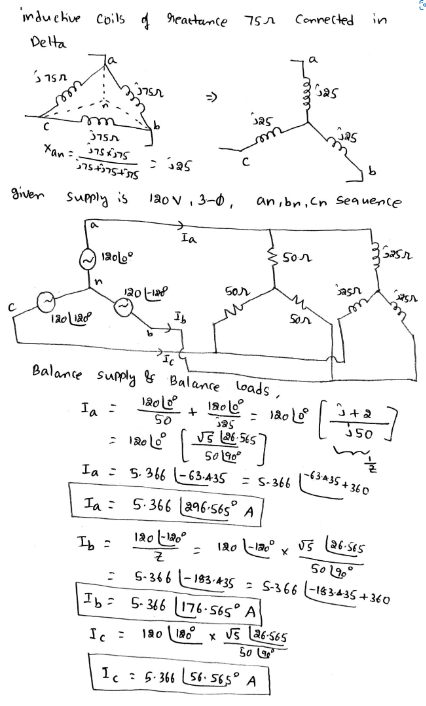 inductive coils of reactance 75Ω Connected in
Delta
a
j75Ω
j75Ω
n
c
j75Ω
b
⇒
a
j25
j25
j25
c
b
Xan = j75×j75 / j75+j75+j75 = j25
given supply is 120V, 3-Ø, an, bn, cn sequence
a
Ia
120∠0°
50Ω
j25Ω
n
120∠-120
50Ω
50Ω
j25Ω
j25Ω
c
120∠120°
b
Ib
Ic
Balance supply & Balance loads,
Ia = 120∠0° / 50 + 120∠0° / j25 = 120∠0° [ j+2 / j50 ]
1/Z
= 120∠0° [ √5∠26.565 / 50∠90° ]
Ia = 5.366∠-63.435 = 5.366∠-63.435+360
Ia = 5.366∠296.565° A
Ib = 120∠-120° / Z = 120∠-120° × √5∠26.565 / 50∠90°
= 5.366∠-183.435 = 5.366∠-183.435+360
Ib = 5.366∠176.565° A
Ic = 120∠120° × √5∠26.565 / 50∠90°
Ic = 5.366∠56.565° A